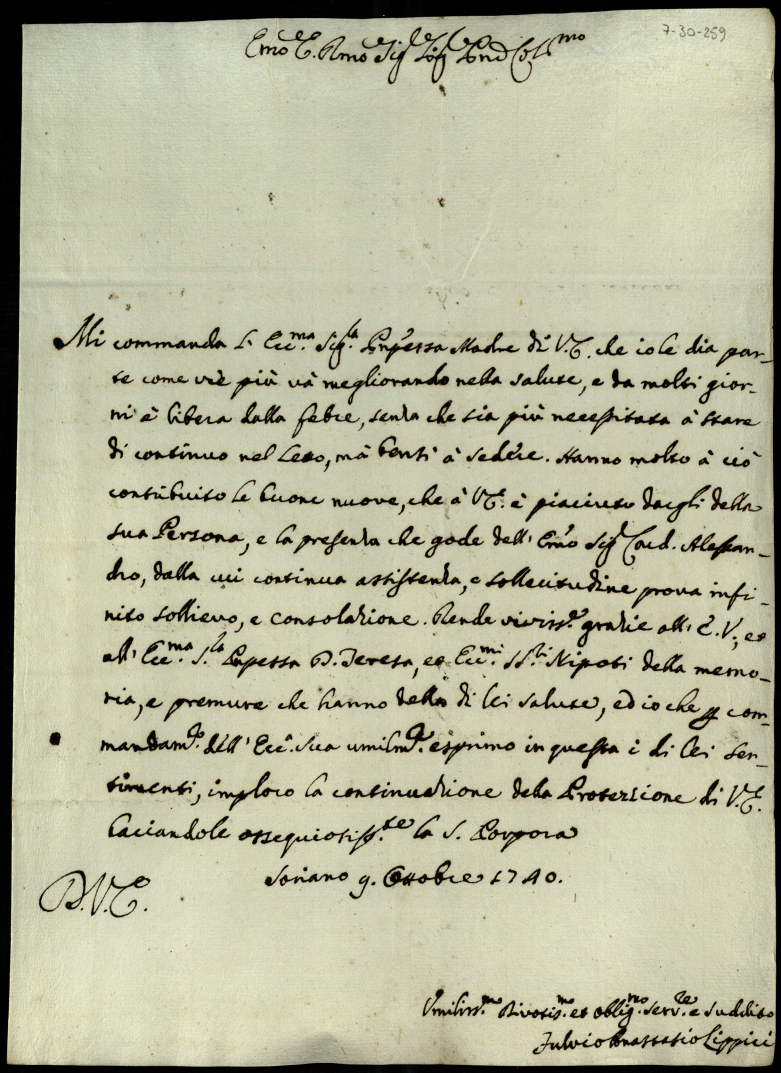 7-30-259
Emo e Rmo Sig.r Sig.r Pne Col.mo
Mi commanda l'Ecc.ma Sig.ra Pnpessa Madre di V.E. che io le dia par-
te come vie più và megliorando nella salute, e da molti gior-
ni è libera dalla febre, senza che sia più necessitata à stare
di continuo nel Letto, mà bensi à sedere. Hanno molto à ciò
contribuito le buone nuove, che à V.E. è piaciuto dargli della
sua Persona, e la presenza che gode dell'Emo Sig.r Card. Alessan-
dro, dalla cui continua assistenza, e sollecitudine prova infi-
nito sollievo, e consolazione. Rende viviss.e grazie all'E.V., et
all'Ecc.ma S.ra Pnpessa D. Teresa, et Ecc.mi SS.ri Nipoti della memo-
ria, e premure che hanno della di lei salute, ed io che p com-
mandam.to dell'Ecc.a Sua umilm.te esprimo in questa i di lei sen-
timenti, imploro la continuazione della Protezzione di V.E.
baciandole ossequiosiss.te la S. Porpora
Soriano 9. Ottobre 1740.
D.V.E.
Umiliss.mo Divotis.mo et oblig.mo serv.re e suddito
Fulvio Anastasio Lippici